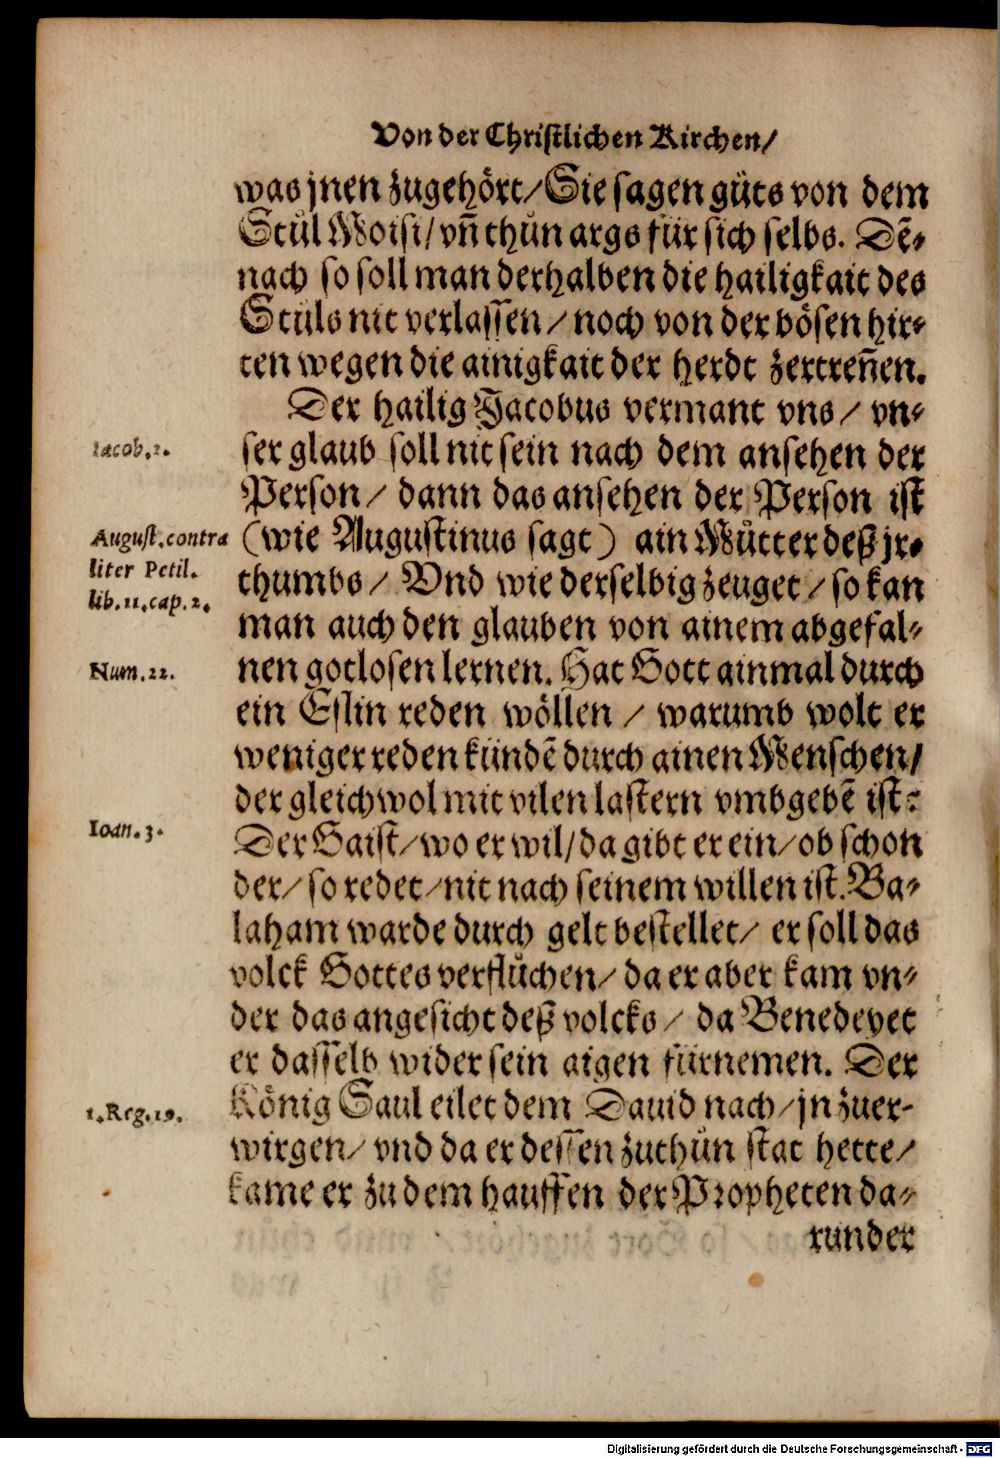 Von der Christlichen Kirchen/
was jnen zugehört/ Sie sagen gůts von dem
Stůl Moisi/ vñ thůn args für sich selbs. Dẽ⸗
nach so soll man derhalben die hailigkait des
Stůls nit verlassen/ noch von der bösen hir⸗
ten wegen die ainigkait der herdt zertreñen.
Der hailig Jacobus vermant vns/ vn⸗
Iacob.2.
ser glaub soll nit sein nach dem ansehen der
Person/ dann das ansehen der Person ist
August.contra
(wie Augustinus sagt) ain Můtter deß jr⸗
liter Petil.
thumbs/ Vnd wie derselbig zeuget/ so kan
lib.11.cap.2.
man auch den glauben von ainem abgefal⸗
Num.22.
nen gotlosen lernen. Hat Gott ainmal durch
ein Eslin reden wöllen/ warumb wolt er
weniger reden kündẽ durch ainen Menschen/
der gleichwol mit vilen lastern vmbgebẽ ist:
Ioan.3.
Der Gaist/ wo er wil/ da gibt er ein/ ob schon
der/ so redet/ nit nach seinem willen ist. Ba⸗
laham warde durch gelt bestellet/ er soll das
volck Gottes verflůchen/ da er aber kam vn⸗
der das angesicht deß volcks/ da Benedeyet
er dasselb wider sein aigen fürnemen. Der
1.Reg.19.
König Saul eilet dem Dauid nach/ jn zuer⸗
wirgen/ vnd da er dessen zuthůn stat hette/
kame er zu dem hauffen der Propheten da⸗
runder
Digitalisierung gefördert durch die Deutsche Forschungsgemeinschaft - DFG